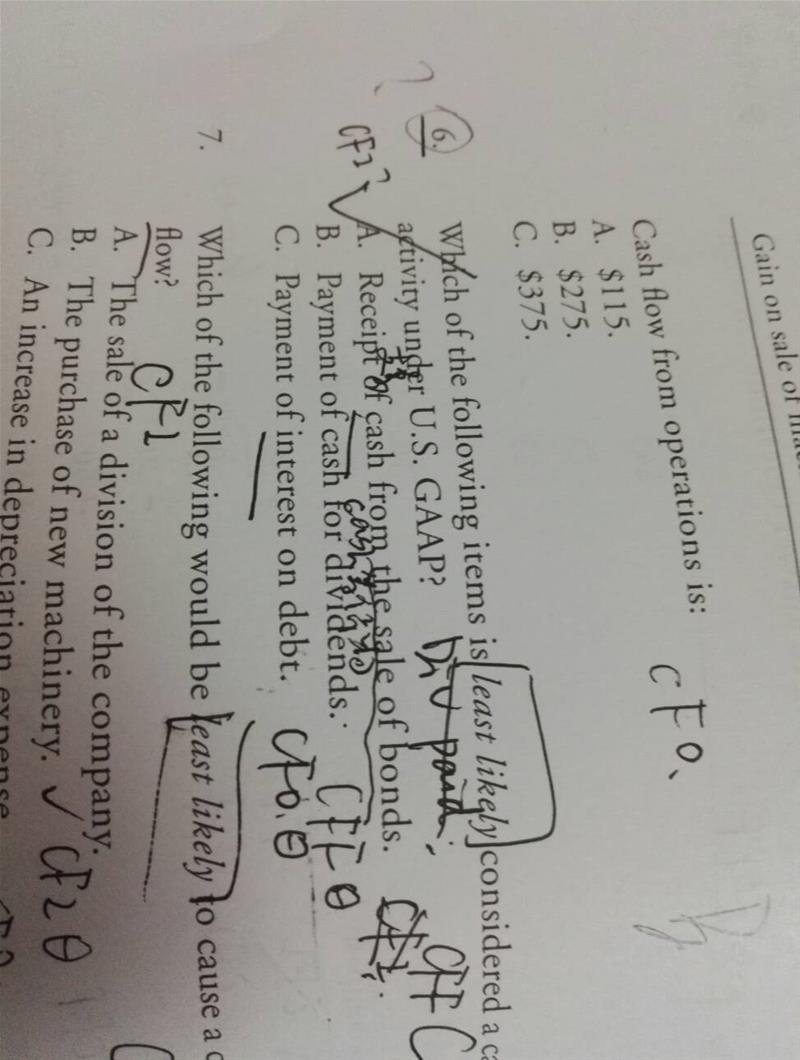 Gain on sale of
Cash flow from operations is: CFO
A. $115.
B. $275.
C. $375.
?
6. Which of the following items is least likely considered a
activity under U.S. GAAP? Div paid. CFF
A. Receipt of cash from the sale of bonds.
B. Payment of cash for dividends. CFF
C. Payment of interest on debt. CFO.
7. Which of the following would be least likely to cause a
flow?
A. The sale of a division of the company.
B. The purchase of new machinery. ✓
C. An increase in depreciation expense